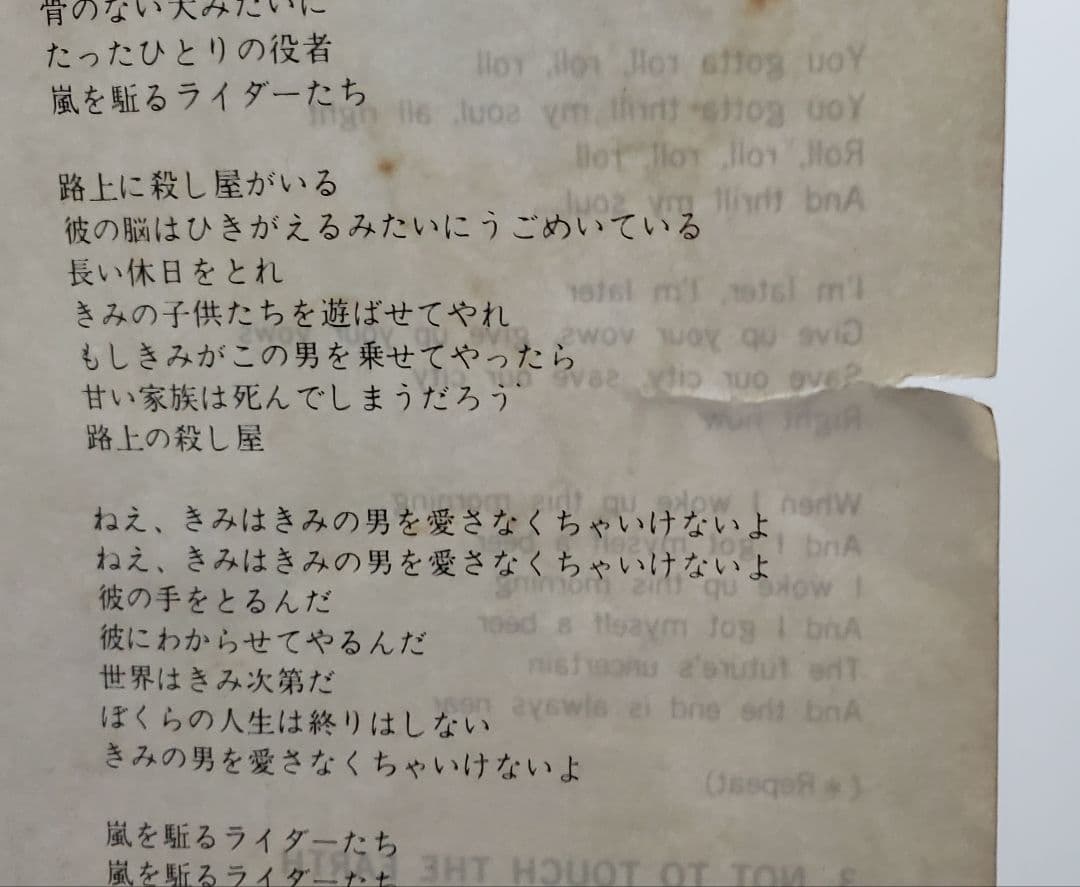 骨のない犬みたいに
たったひとりの役者
嵐を駈るライダーたち
路上に殺し屋がいる
彼の脳はひきがえるみたいにうごめいている
長い休日をとれ
きみの子供たちを遊ばせてやれ
もしきみがこの男を乗せてやったら
甘い家族は死んでしまうだろう
路上の殺し屋
ねえ、きみはきみの男を愛さなくちゃいけないよ
ねえ、きみはきみの男を愛さなくちゃいけないよ
彼の手をとるんだ
彼にわからせてやるんだ
世界はきみ次第だ
ぼくらの人生は終りはしない
きみの男を愛さなくちゃいけないよ
嵐を駈るライダーたち
嵐を駈るライダーたち